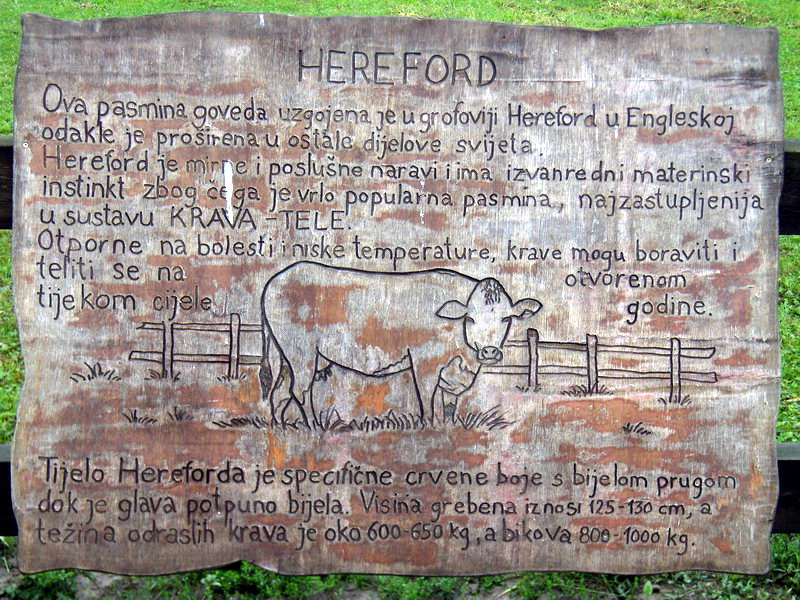 HEREFORD
Ova pasmina goveda uzgojena je u grofoviji Hereford u Engleskoj
odakle je proširena u ostale dijelove svijeta.
Hereford je mirne i poslušne naravi i ima izvanredni materinski
instinkt zbog čega je vrlo popularna pasmina, najzastupljenija
u sustavu KRAVA-TELE.
Otporne na bolesti i niske temperature, krave mogu boraviti i
teliti se na otvorenom
tijekom cijele godine.
Tijelo Hereforda je specifične crvene boje s bijelom prugom
dok je glava potpuno bijela. Visina grebena iznosi 125-130 cm, a
težina odraslih krava je oko 600-650 kg, a bikova 800-1000 kg.